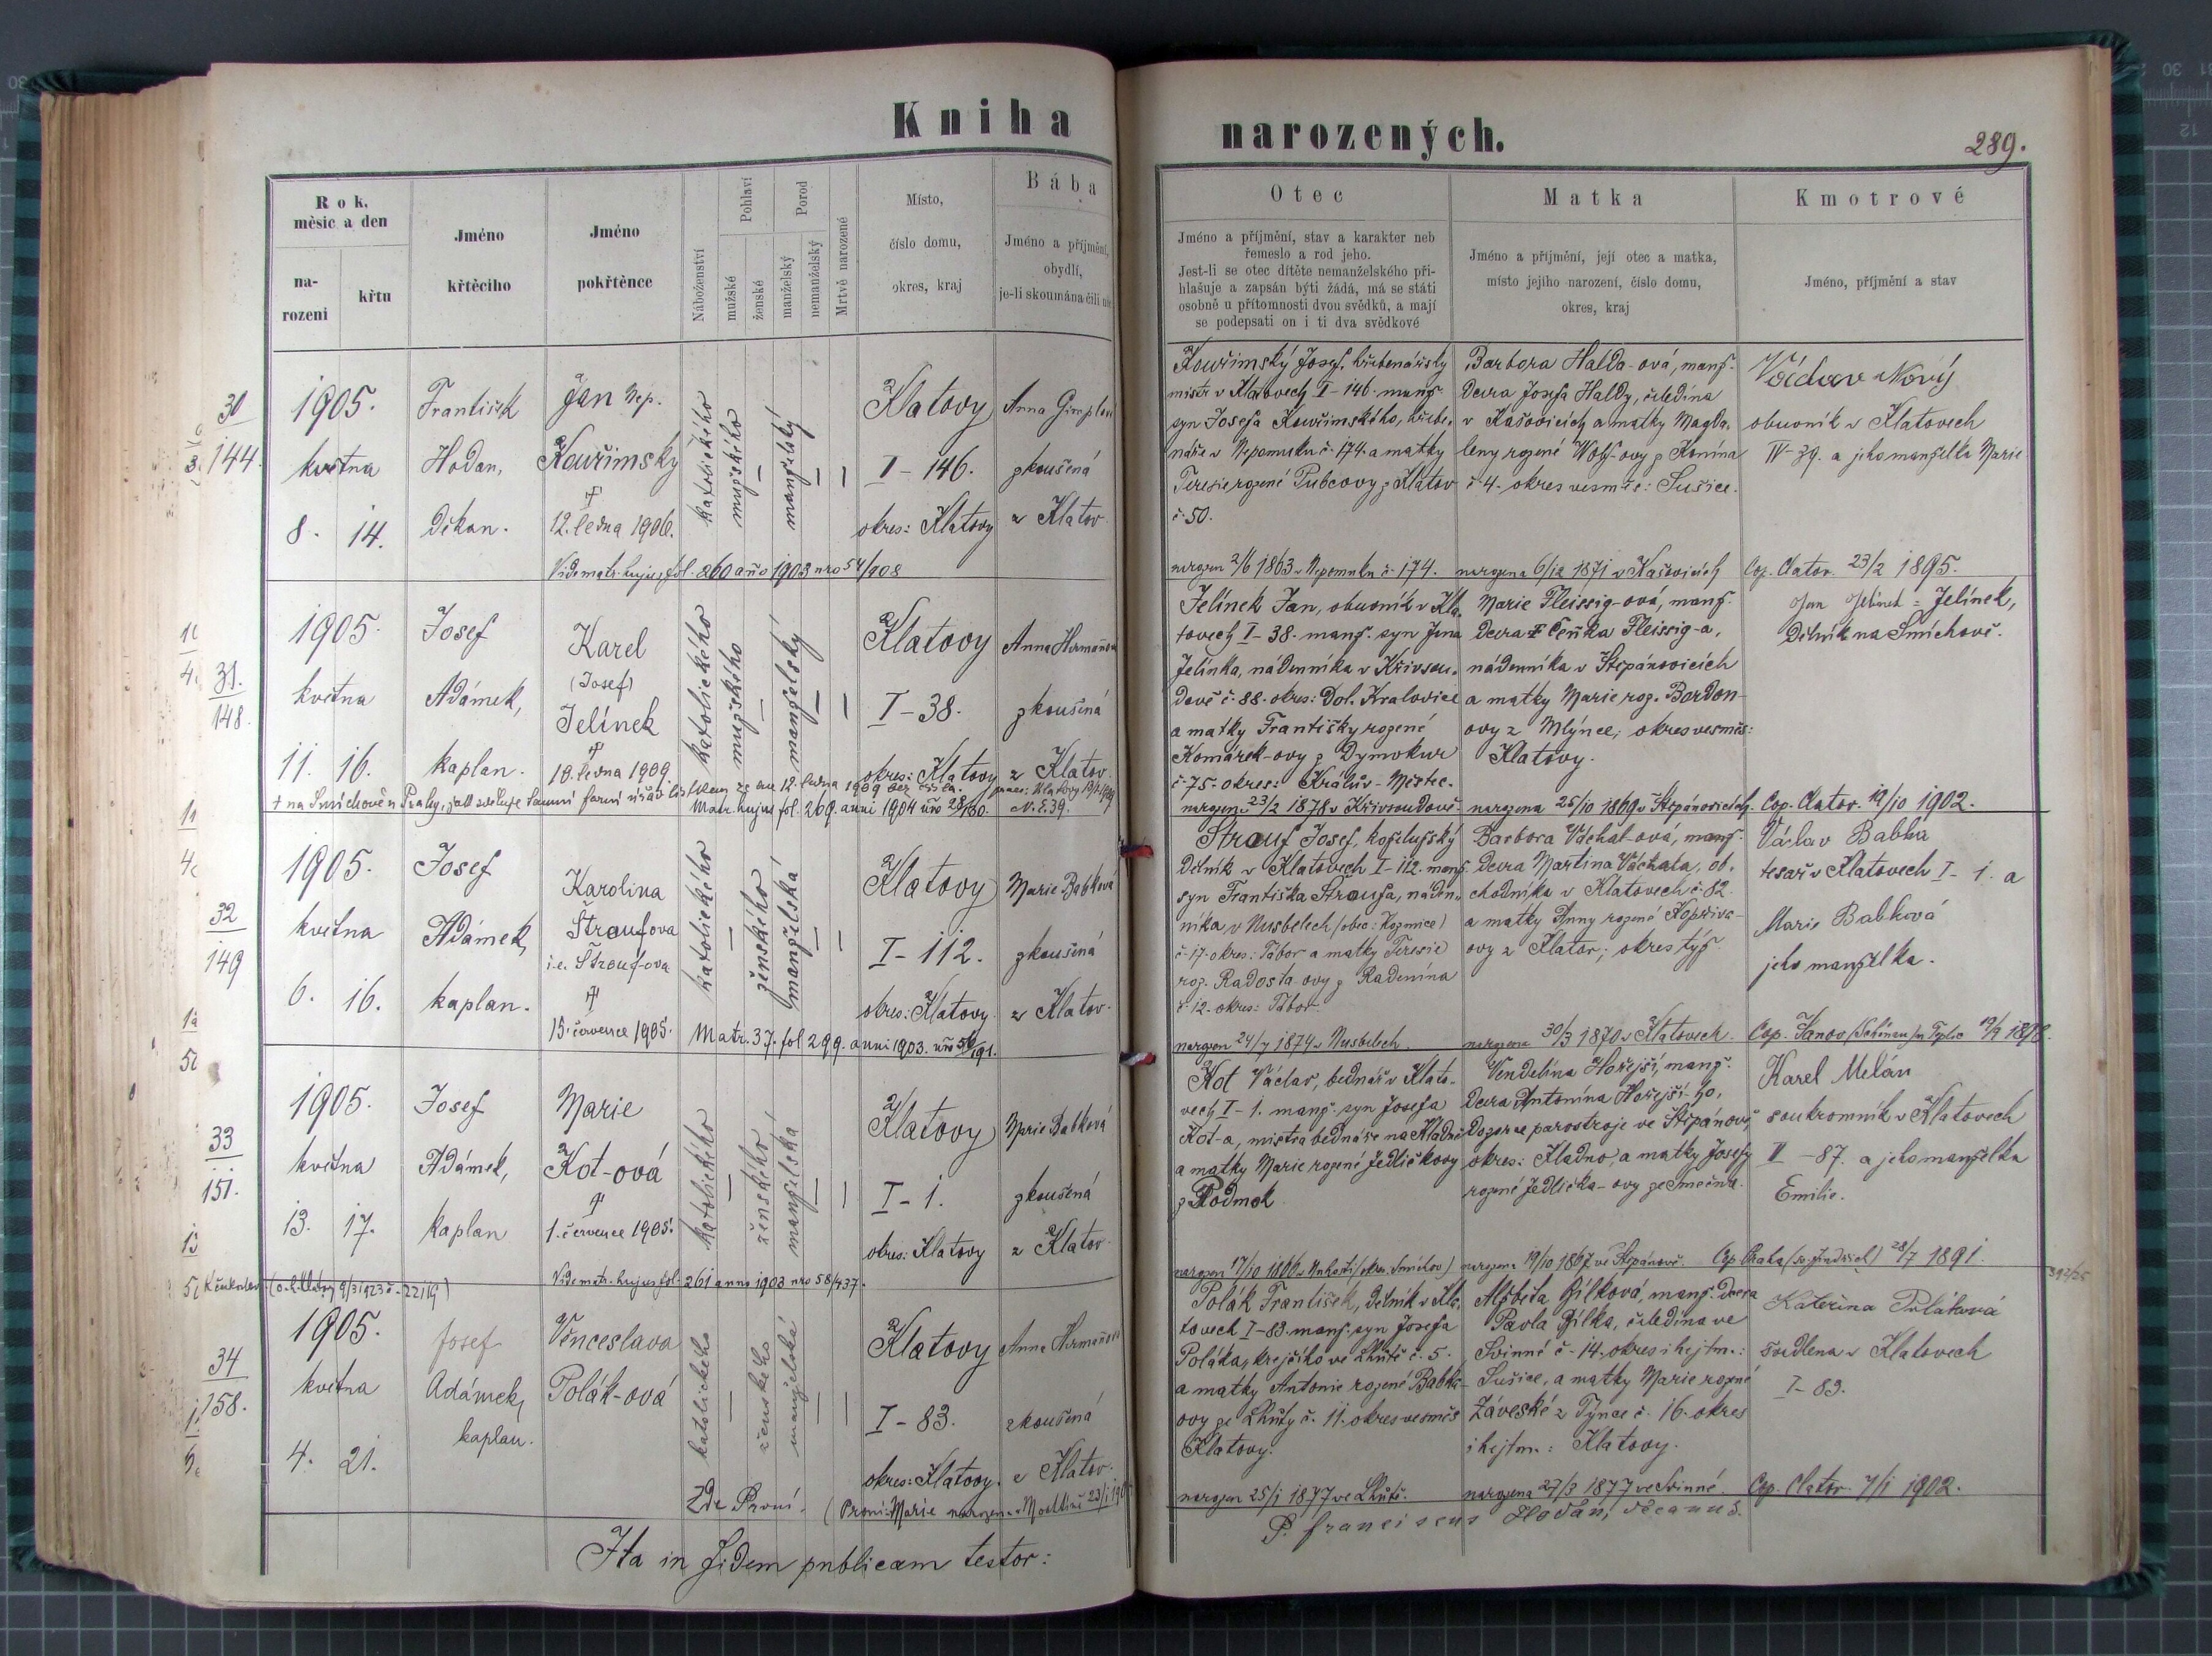 Kniha narozených.
289.
Rok, měsíc a den
na-
rozeni
křtu
Jméno
křtěcího
Jméno
pokřtěnce
Náboženství
Pohlaví
mužské
ženské
Porod
manželský
nemanželský
Mrtvě narozené
Místo,
číslo domu,
okres, kraj
Bába
Jméno a příjmění,
obydlí,
je-li skoumána čili
Otec
Jméno a příjmění, stav a karakter neb
řemeslo a rod jeho.
Jest-li se otec dítěte nemanželského při-
hlašuje a zapsán býti žádá, má se státi
osobně u přítomnosti dvou svědků, a mají
se podepsati on i ti dva svědkové
Matka
Jméno a příjmění, její otec a matka,
místo jejího narození, číslo domu,
okres, kraj
Kmotrové
Jméno, příjmění a stav
30
144.
1905.
května
8. 14.
František
Hodan,
děkan.
Jan Nep.
Kouřimský
†
12. ledna 1906.
katolického
mužského
manželský
Klatovy
I-146.
okres: Klatovy
Anna
zkoušená
z Klatov.
Vide matr. hujus fol. 260 anno 1903 nro 54/908
Kouřimský Josef, hřebenářský
mistr v Klatovech I-146. manž.
syn Josefa Kouřimského, hřebe-
náře v Nepomuku č. 174. a matky
Teresie rozené Pubcovy z Klatov
č. 50.
narozen 2/6 1863 v Nepomuku č. 174.
Barbora Halda-ová, manž.
dcera Josefa Haldy, čeledína
v Kašovicích a matky Magda-
leny rozené Wolf-ovy z Konína
č. 4. okres vesměs: Sušice.
narozena 6/12 1871 v Kašovicích
Václav Nový
obuvník v Klatovech
IV-39. a jeho manželka Marie
Cop. Clatov. 23/2 1895.
31.
148.
1905.
května
11. 16.
Josef
Adámek,
kaplan.
Karel
(Josef)
Jelínek
†
10. ledna 1909.
katolického
mužského
manželský
Klatovy
I-38.
okres: Klatovy
Anna
zkoušená
z Klatov.
† na Smíchově u Prahy, jak svědčuje tamní farní úřad listem ze dne 12. ledna 1909 bez čísla.
Matr. hujus fol. 269. anni 1904 nro 28/180. N. E. 39.
Jelínek Jan, obuvník v Kla-
tovech I-38. manž. syn Jana
Jelínka, nádenníka v Křivsou-
dově č. 88. okres: Dol. Kralovice
a matky Františky rozené
Komárek-ovy z Dymokur
č. 75. okres: Králův-Městec.
narozen 23/2 1878 v Křivsoudově.
Marie Fleissig-ová, manž.
dcera Čeňka Fleissig-a,
nádenníka v Štěpánovicích
a matky Marie roz. Bardon-
ovy z Mlýnce, okres vesměs:
Klatovy.
narozena 25/10 1869 v Štěpánovicích.
Jan Jelínek = Jelínek,
dělník na Smíchově.
Cop. Clatov. 19/10 1902.
32
149
1905.
května
6. 16.
Josef
Adámek,
kaplan.
Karolina
Štraufova
i.e. Štrauf-ova
†
15. července 1905.
katolického
ženského
manželská
Klatovy
I-112.
okres: Klatovy.
Marie Babková
zkoušená
z Klatov.
Matr. 37. fol 299. anni 1903. nro 56/191.
Štrauf Josef, koželužský
dělník v Klatovech I-112. manž.
syn Františka Štraufa, náden-
níka, v Nusbelech (obec: Kozmice)
č. 17. okres: Tábor a matky Teresie
roz. Radosta-ovy z Radenína
č. 12. okres: Tábor.
narozen 24/7 1874 v Nusbelech.
Barbora Váchal-ová, manž.
dcera Martina Váchala, ob-
chodníka v Klatovech č. 82.
a matky Anny rozené Kopřiva-
ovy z Klatov; okres týž.
narozena 30/3 1870 v Klatovech.
Václav Babka
tesař v Klatovech I-1. a
Marie Babková
jeho manželka.
Cop. Šanov (Schönau) u Teplic 19/9 1898.
33
151.
1905.
května
13. 17.
Josef
Adámek,
kaplan
Marie
Kot-ová
†
1. července 1905.
katolického
ženského
manželská
Klatovy
I-1.
okres: Klatovy
Marie Babková
zkoušená
z Klatov
Vide matr. hujus fol. 261 anno 1903 nro 58/437.
Kot Václav, bednář v Klato-
vech I-1. manž. syn Josefa
Kot-a, mistra bednáře na Kladně
a matky Marie rozené Jedličkovy
z Podmok
narozen 17/10 1866 v (okres Smíchov)
Vendelína Hořejší, manž.
dcera Antonína Hořejší-ho,
dozorce parostroje ve Štěpánově,
okres: Kladno, a matky Josefy
rozené Jedlička-ovy ze Smečna.
narozena 19/10 1867 ve Štěpánově.
Karel Melán
soukromník v Klatovech
II-87. a jeho manželka
Emilie.
Cop. Praha (sv. Jindřich) 28/7 1891.
34
158.
1905.
května
4. 21.
Josef
Adámek,
kaplan.
Věnceslava
Polák-ová
katolického
ženského
manželská
Klatovy
I-83.
okres: Klatovy.
Anna
zkoušená
z Klatov.
Zde První. (První: Marie narozena v
Polák František, dělník v Kla-
tovech I-83. manž. syn Josefa
Poláka, krejčího ve Lhůtě č. 5.
a matky Antonie rozené Babka-
ovy ze Lhůty č. 11. okres vesměs
Klatovy.
narozen 25/1 1877 ve Lhůtě.
Alžběta Bílková, manž. dcera
Pavla Bílka, čeledína ve
Svinné č. 14. okres i hejtm.:
Sušice, a matky Marie rozené
Záveské z Týnce č. 16. okres
i hejtm.: Klatovy.
narozena 27/3 1877 ve Svinné.
Kateřina Poláková
švadlena v Klatovech
I-83.
Cop. Clatov. 7/1 1902.
Ita in fidem publicam testor:
P. Franciscus Hodan, decanus.